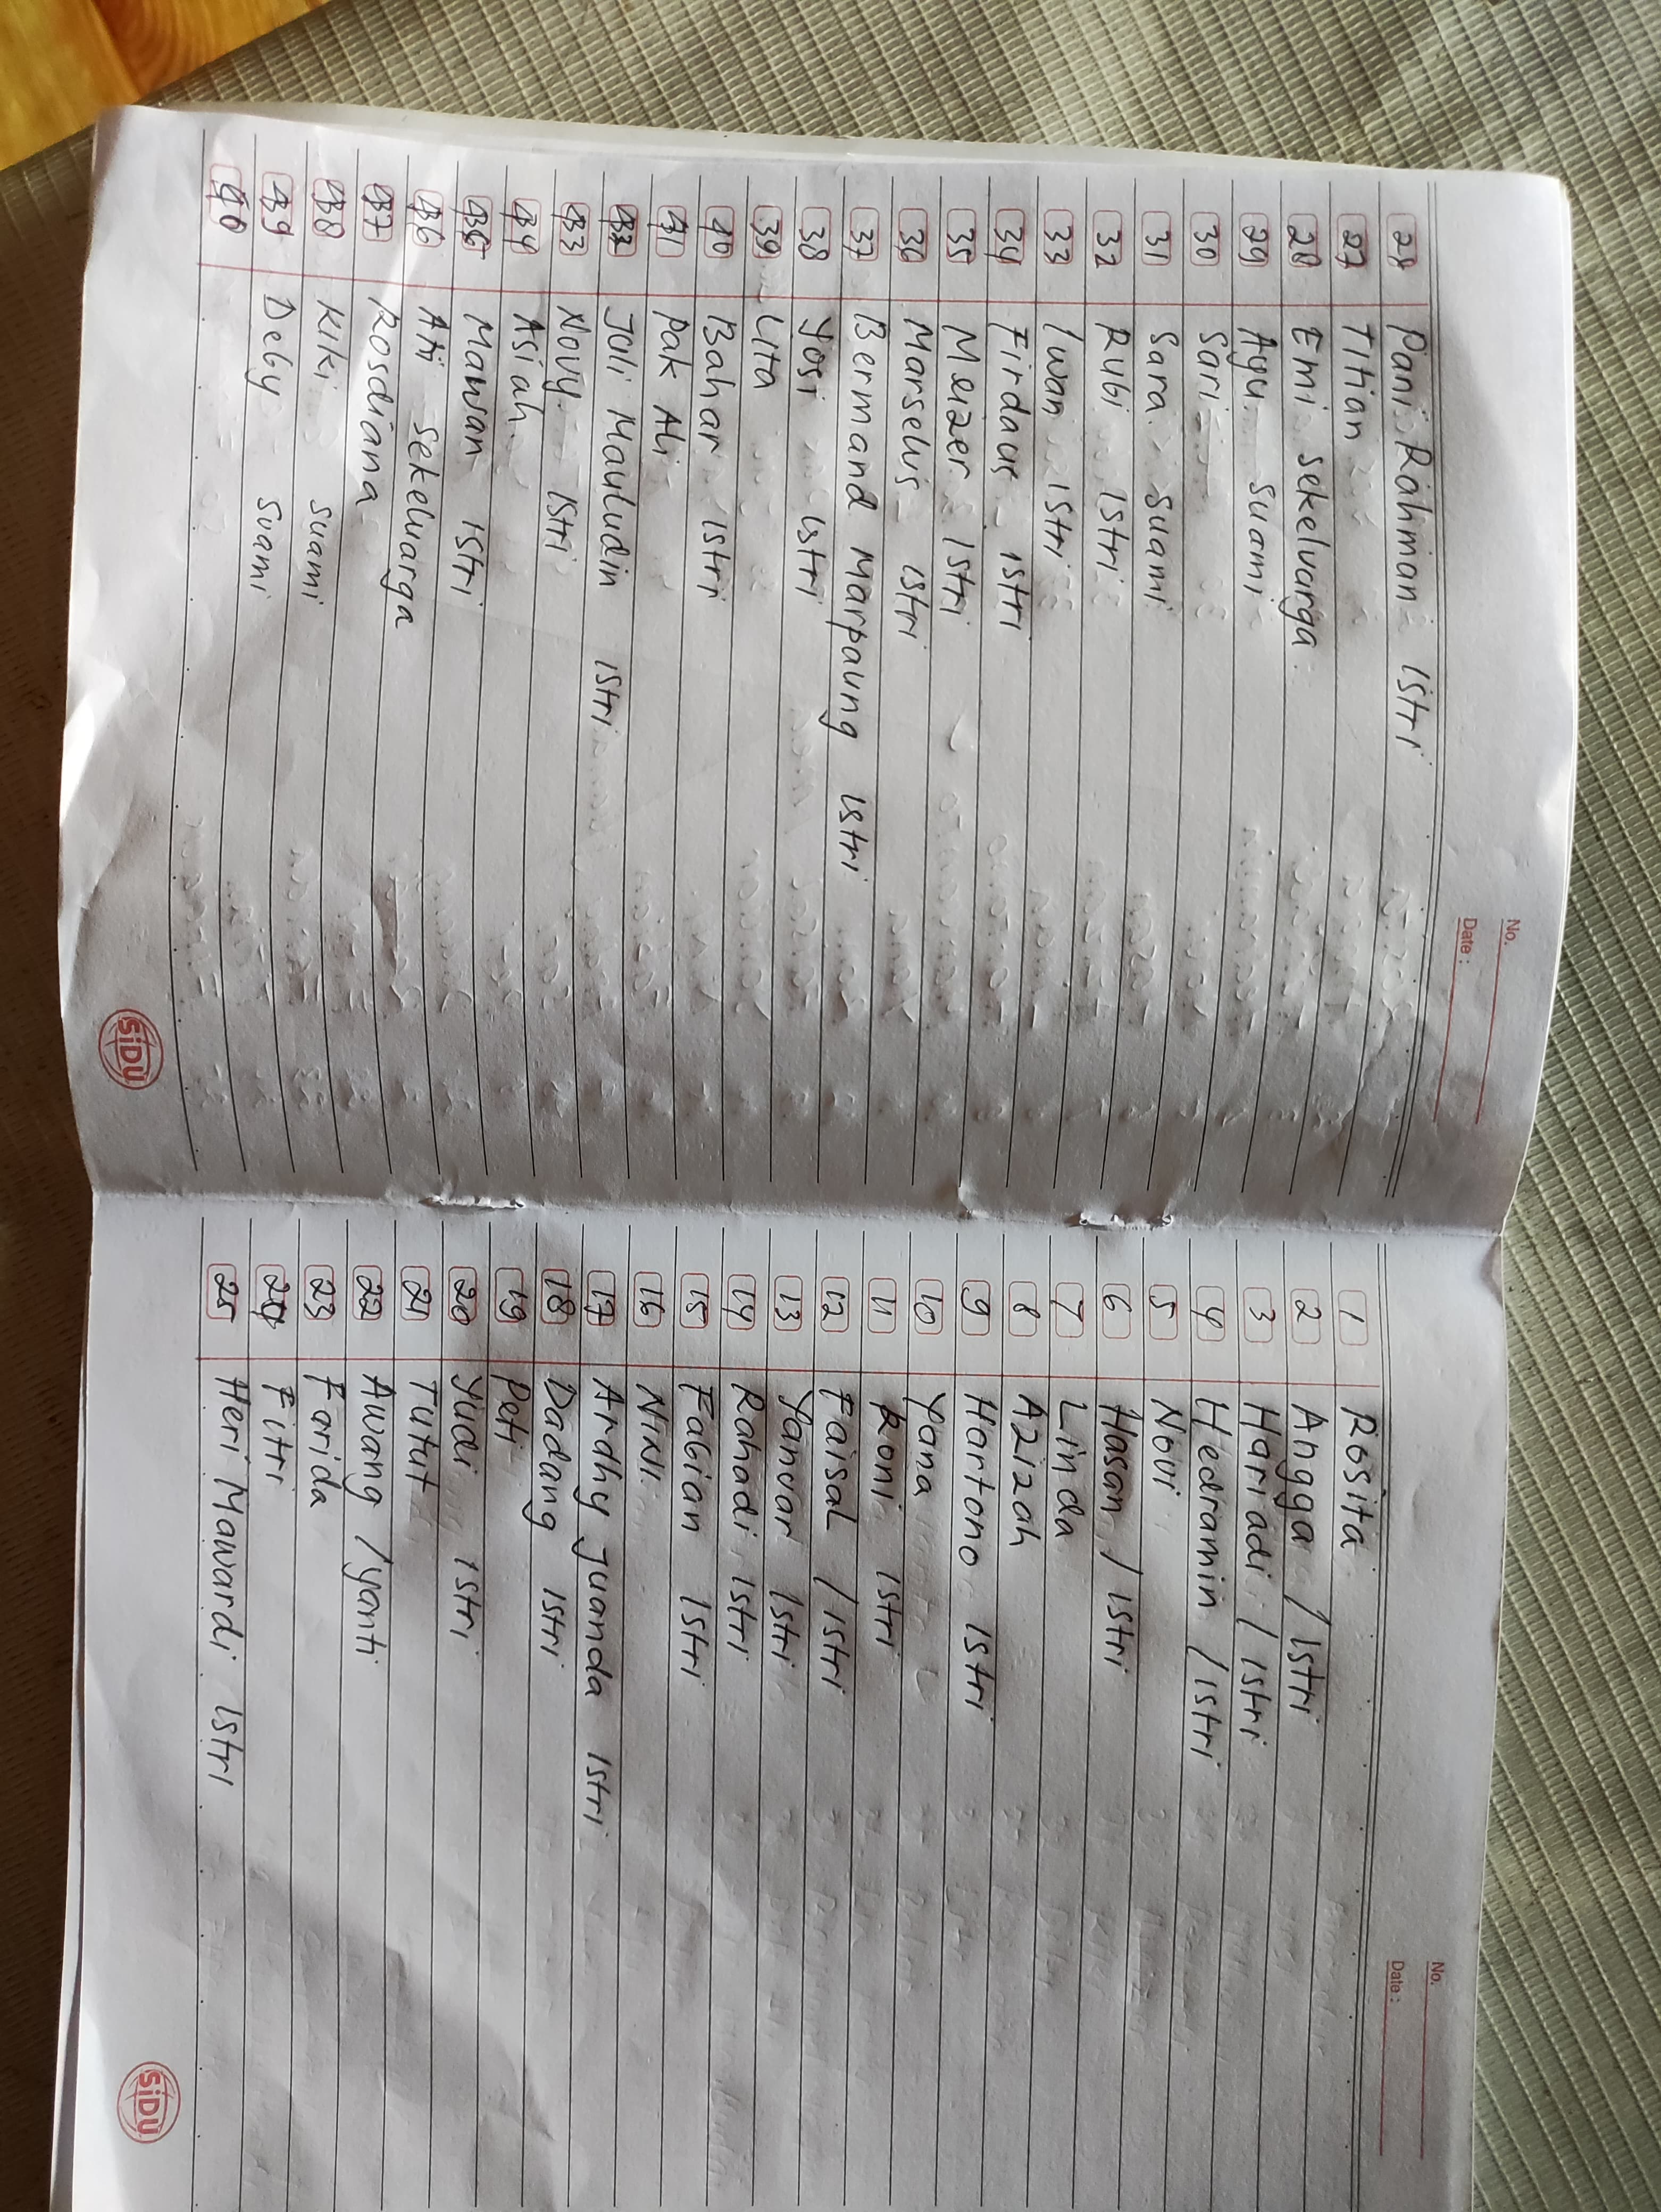 No.
Date :
28 Pani Rahman Istri
27 Titian
28 Emi sekeluarga
29 Ayu suami
30 Sari
31 Sara suami
32 Rubi Istri
33 Iwan Istri
34 Firdaus Istri
35 Meizer Istri
36 Marselus Istri
37 Bermand Marpaung Istri
38 Yosi Istri
39 Lita
40 Bahar Istri
41 Pak Ali
Juli Mauludin Istri
43 Novy Istri
44 Asiah
Mawan Istri
46 Ati sekeluarga
47 Rosdiana
48 Kiki suami
49 Deby suami
SiDU
No.
Date :
1 Rosita
2 Angga / Istri
3 Hariadi / Istri
4 Hedramin / Istri
5 Novi
6 Hasan / Istri
7 Linda
8 Azizah
9 Hartono Istri
10 Yana
11 Roni Istri
12 Faisal / Istri
13 Yanuar Istri
14 Rahadi Istri
15 Fabian Istri
16 NINI
17 Ardhy Juanda Istri
18 Dadang Istri
19 Peti
20 Yudi Istri
21 Tutut
22 Awang / Yanti
23 Farida
24 Fitri
25 Heri Mawardi Istri
SiDU